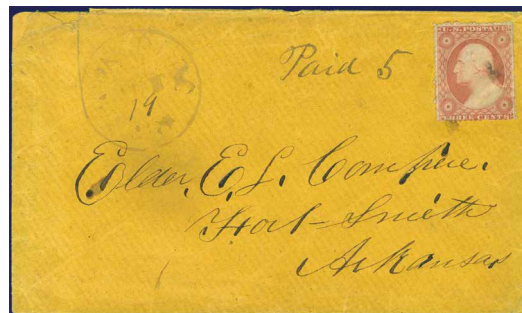 Paid 5
U.S. POSTAGE
THREE CENTS
19
Elder, E. L. Compere.
Fort-Smith
Arkansas